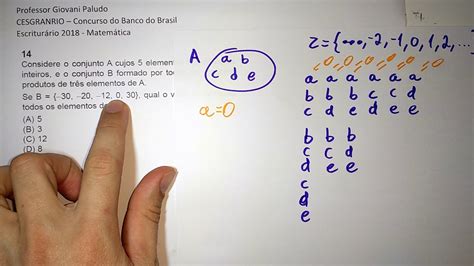 Professor Giovani Paludo
CESGRANRIO – Concurso do Banco do Brasil
Escriturário 2018 - Matemática
14
Considere o conjunto A cujos 5 elemen
inteiros, e o conjunto B formado por to
produtos de três elementos de A.
Se B = {-30, -20, -12, 0, 30}, qual o v
todos os elementos de
(A) 5
(B) 3
(C) 12
(D) 8
A
a b
c d e
a=0
Z={..., -2, -1, 0, 1, 2, ...
=0 =0 =0 =0 =0 =0
a a a a a a
b b b c c d
c d e d e e
b b b
c c d
d e e
c
d
e